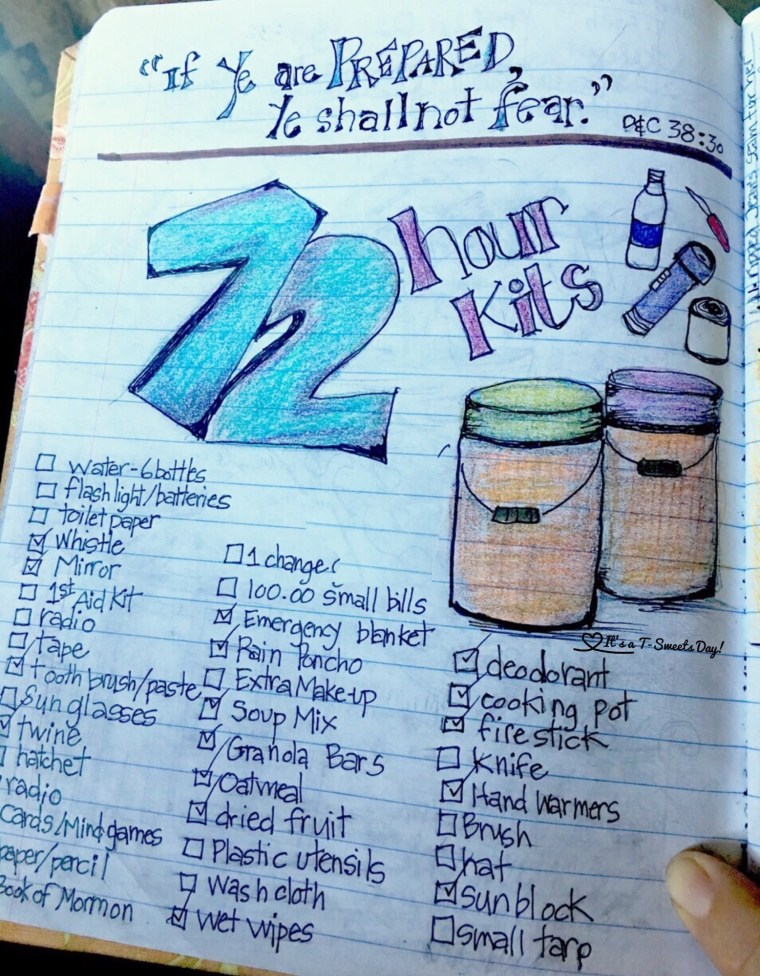 "If Ye are PREPARED,
Ye shall not fear."
D&C 38:30
72 hour
Kits
water-6 bottles
flashlight/batteries
toilet paper
Whistle
Mirror
1st Aid Kit
radio
tape
toothbrush/paste
Sunglasses
twine
hatchet
radio
Cards/Mind games
paper/pencil
Book of Mormon
1 changer
100.00 small bills
Emergency blanket
Rain Poncho
Extra Make-up
Soup Mix
Granola Bars
Oatmeal
dried fruit
Plastic utensils
Wash cloth
Wet wipes
It's a T-Sweets Day!
deodorant
cooking pot
fire stick
Knife
Hand Warmers
Brush
hat
sunblock
small tarp